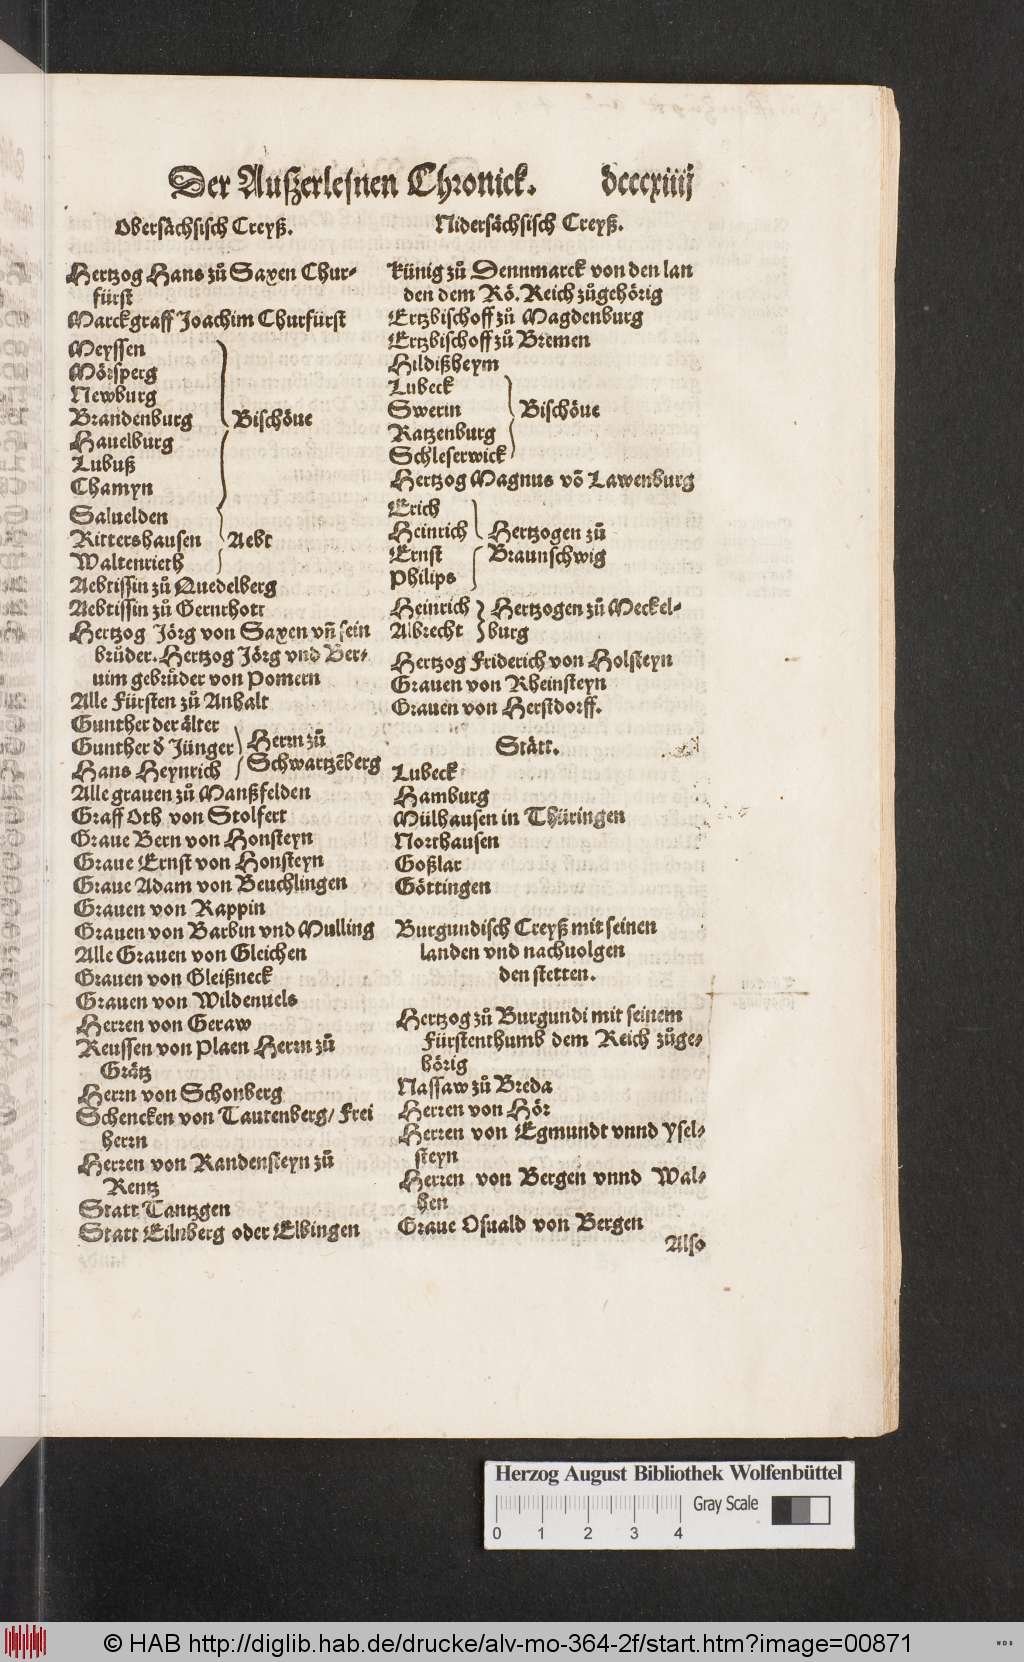 Der Außerlesnen Chronick. dcccxiiij
Obersächsisch Creyß.
Hertzog Hans zů Saxen Chur-
fürst
Marckgraff Joachim Churfürst
Meyssen
Mörsperg
Newburg
Brandenburg
Bischöue
Hauelburg
Lubuß
Chamyn
Saluelden
Rittershausen
Aebt
Waltenrieth
Aebtissin zů Quedelberg
Aebtissin zů Gernrhott
Hertzog Jörg von Saxen vñ sein
brůder. Hertzog Jörg vnd Ber-
nim gebrůder von Pomern
Alle Fürsten zů Anhalt
Gunther der älter
Gunther d' Jünger
Hans Heynrich
Herrn zů
Schwartzẽberg
Alle grauen zů Manßfelden
Graff Oth von Stolfert
Graue Bern von Honsteyn
Graue Ernst von Honsteyn
Graue Adam von Beuchlingen
Grauen von Rappin
Grauen von Barbin vnd Mulling
Alle Grauen von Gleichen
Grauen von Gleißneck
Grauen von Wildenuels
Herren von Geraw
Reussen von Plaen Herrn zů
Grätz
Herrn von Schonberg
Schencken von Tautenberg/ Frei
herrn
Herren von Randensteyn zů
Rentz
Statt Tantzgen
Statt Eilnberg oder Elbingen
Nidersächsisch Creyß.
Künig zů Dennmarck von den lan
den dem Rö. Reich zůgehörig
Ertzbischoff zů Magdenburg
Ertzbischoff zů Bremen
Hildißheym
Lubeck
Swerin
Bischöue
Ratzenburg
Schleserwick
Hertzog Magnus võ Lawenburg
Erich
Heinrich
Ernst
Philips
Hertzogen zů
Braunschwig
Heinrich
Albrecht
Hertzogen zů Meckel-
burg
Hertzog Friderich von Holsteyn
Grauen von Rheinsteyn
Grauen von Herstdorff.
Stätt.
Lubeck
Hamburg
Mülhausen in Thüringen
Northausen
Goßlar
Göttingen
Burgundisch Creyß mit seinen
landen vnd nachuolgen
den stetten.
Hertzog zů Burgundi mit seinem
Fürstenthumb dem Reich zůge-
hörig
Nassaw zů Breda
Herren von Hör
Herren von Egmundt vnnd Ysel-
steyn
Herren von Bergen vnnd Wal-
hen
Graue Osuald von Bergen
Also
Herzog August Bibliothek Wolfenbüttel
Gray Scale
0 1 2 3 4
© HAB http://diglib.hab.de/drucke/alv-mo-364-2f/start.htm?image=00871